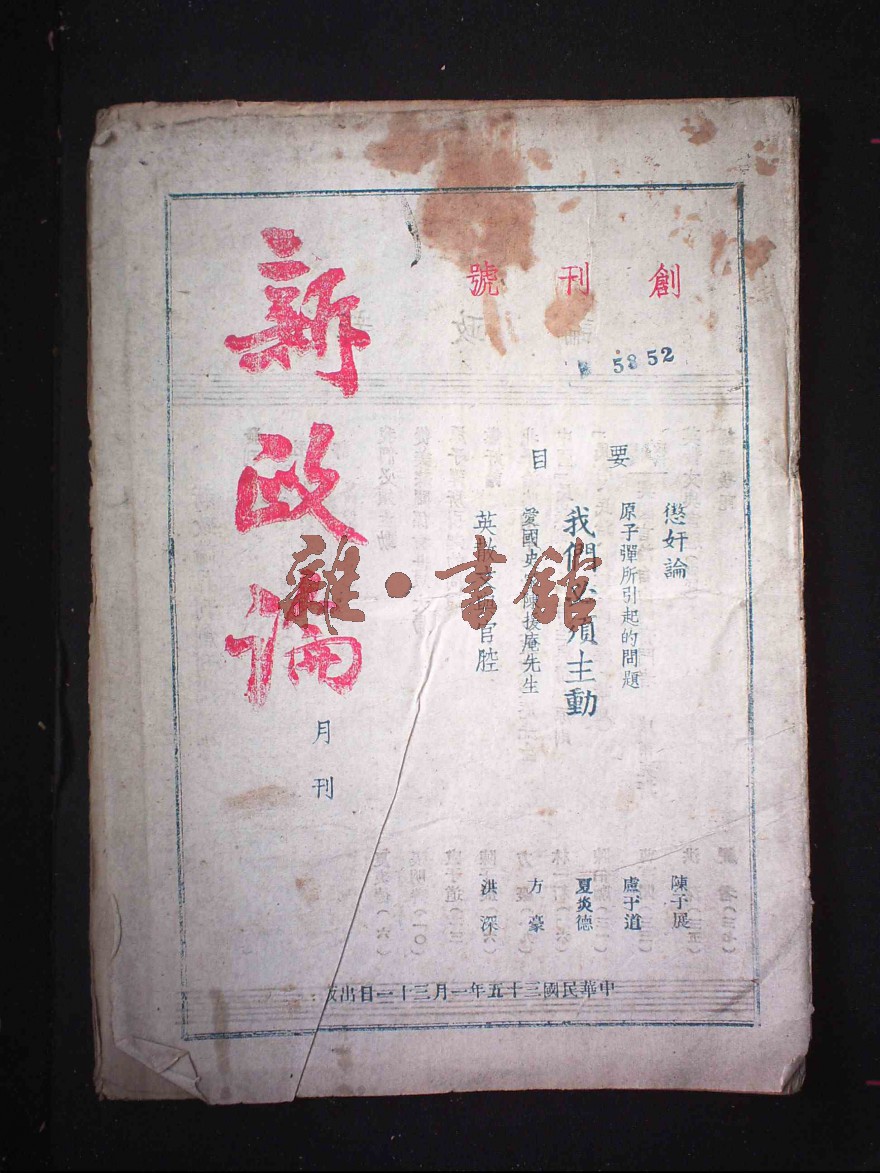 創刊號
5852
新政論
月刊
要目
懲奸論 陳子展
原子彈所引起的問題 盧于道
我們必須主動 夏炎德
愛國史 陳援庵先生 方豪
英 官腔 洪深
中華民國三十五年一月三十一日出版
雜·書館